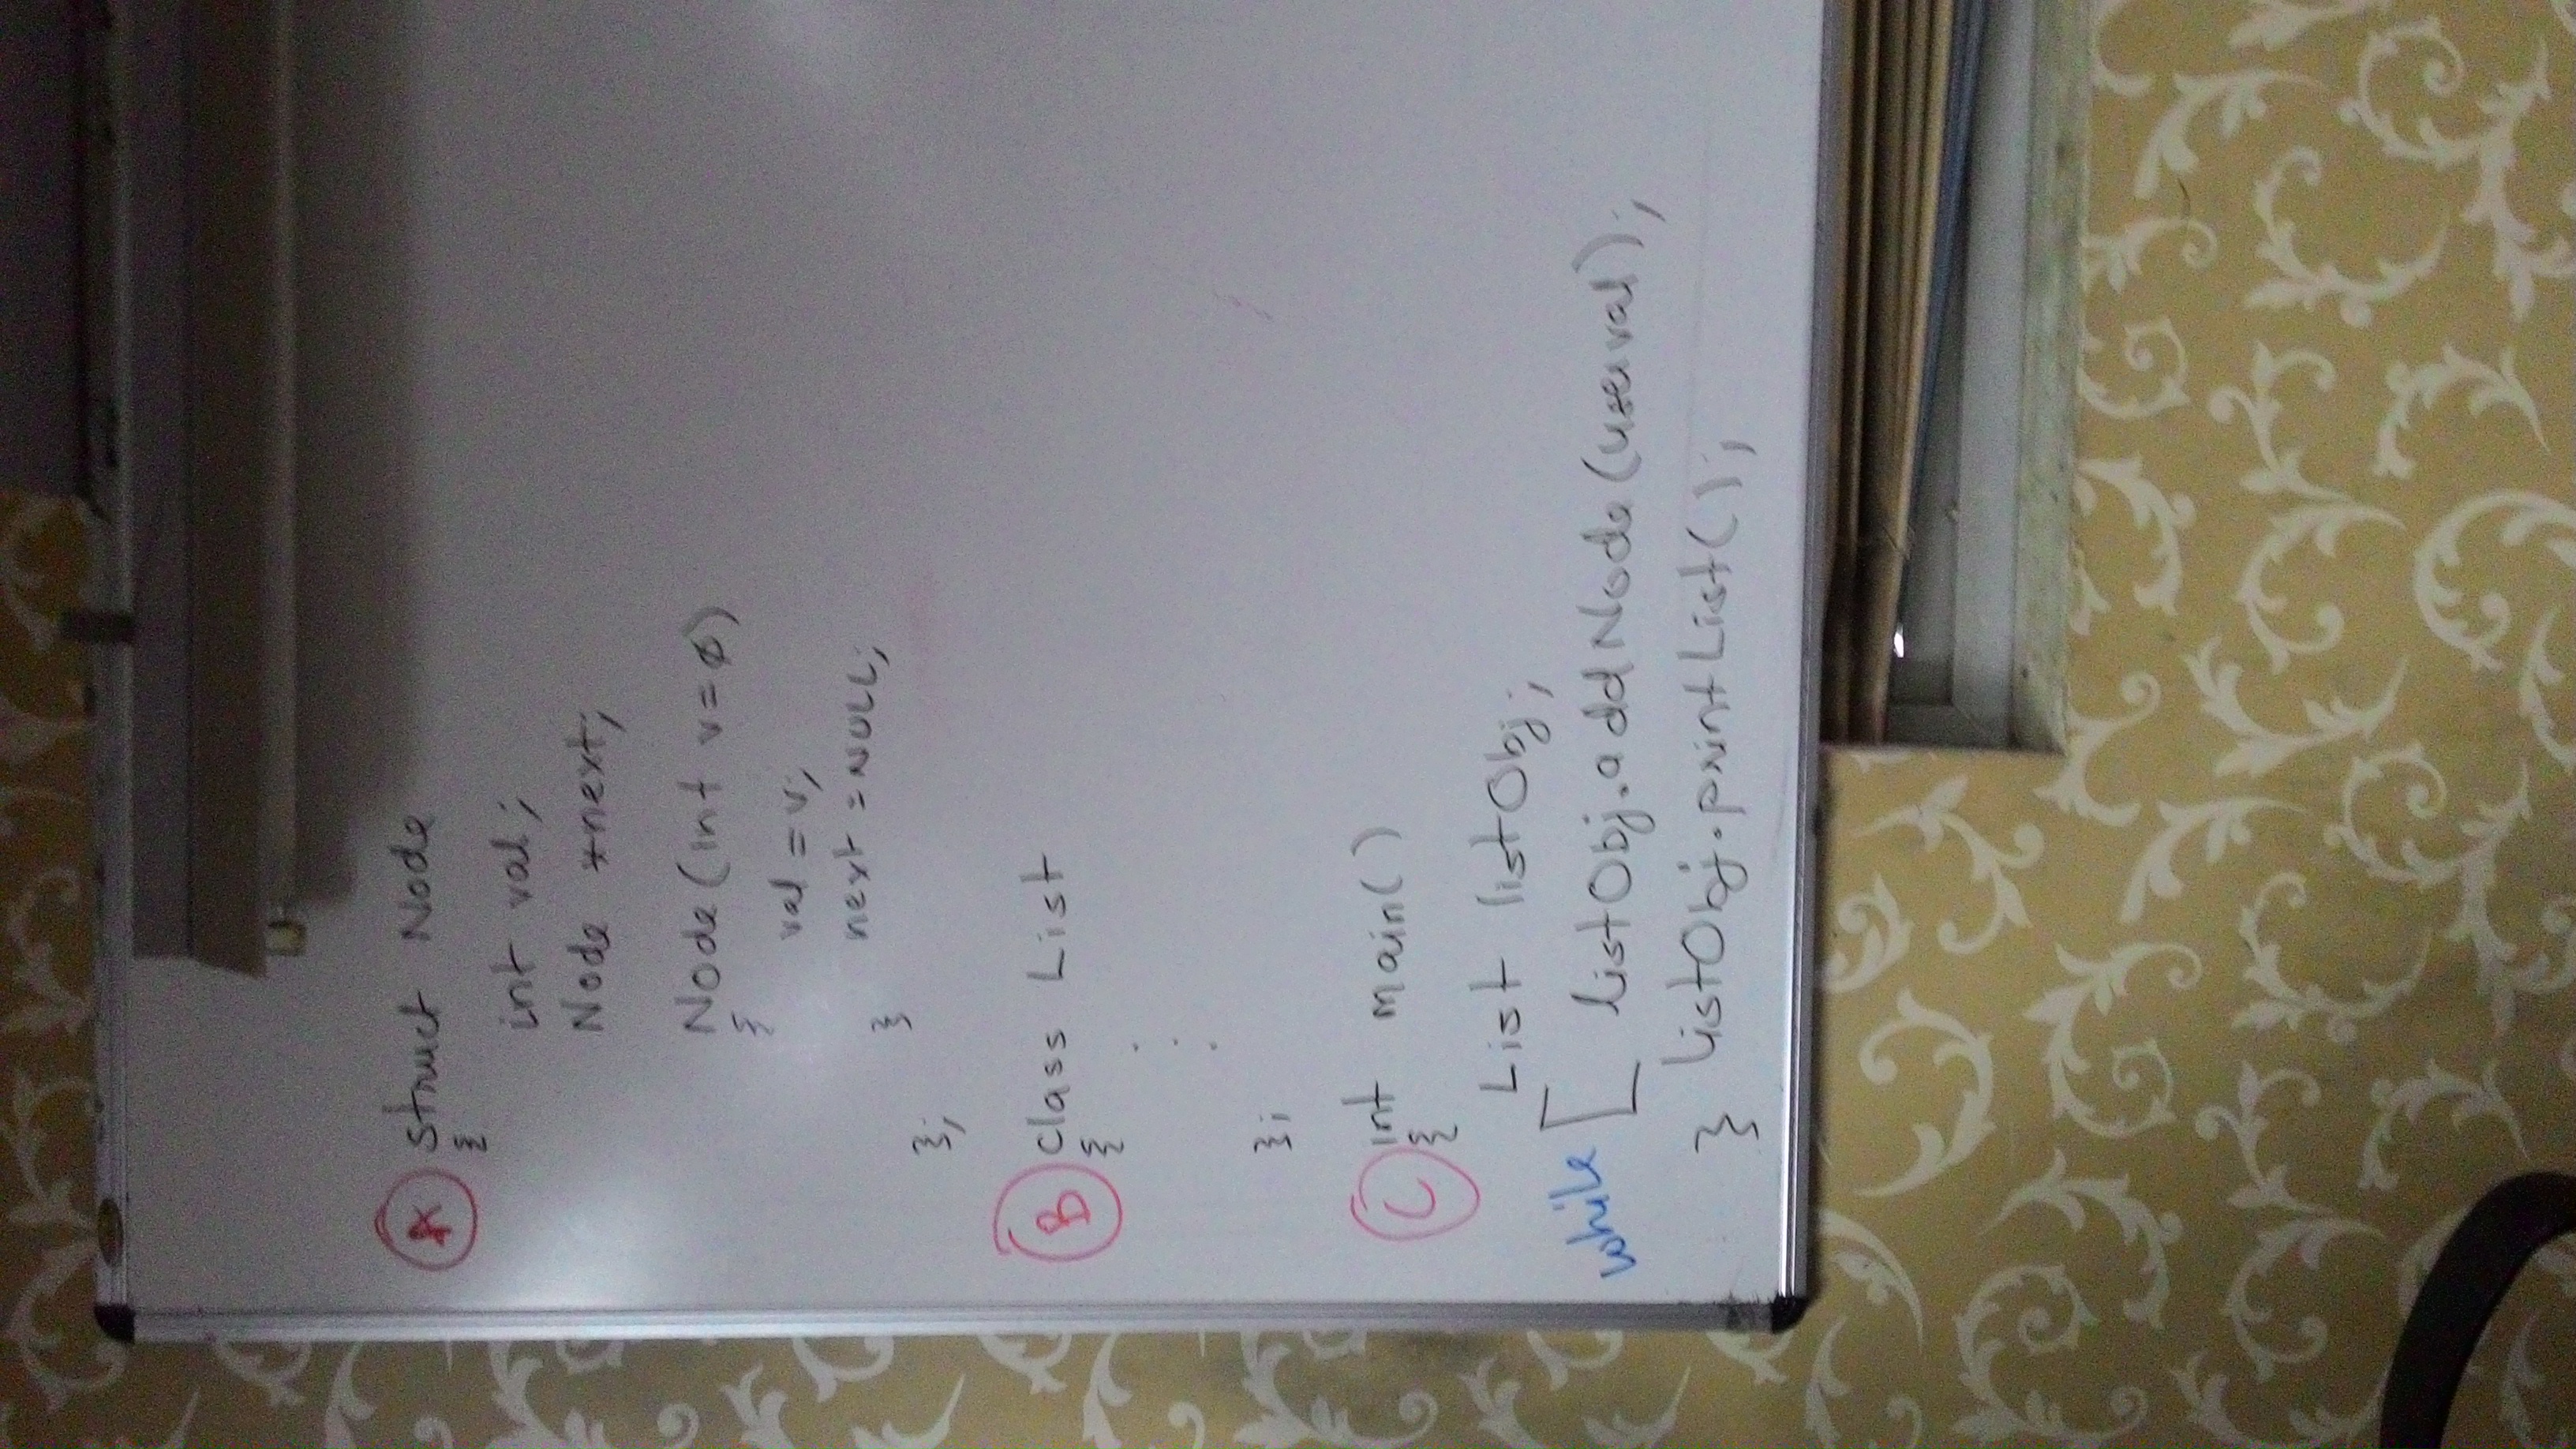 A struct Node
{
int val;
Node *next;
Node(int v=ø)
{
val = v;
next = NULL;
}
};
B class List
{
.
.
.
};
C int main()
{
List listObj;
while [ listObj.addNode(userval);
} listObj.printList();